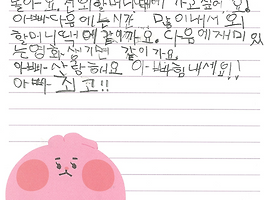 놀아요. 전 외할머니댁에 가고 싶어요!
아빠 다음에는 시간 많이 내서 외
할머니댁에 같이 가요. 다음에 재미있
는 영화 생기면 같이 가요.
아빠 사랑해요 아빠 힘내세요!!
아빠 최고!!